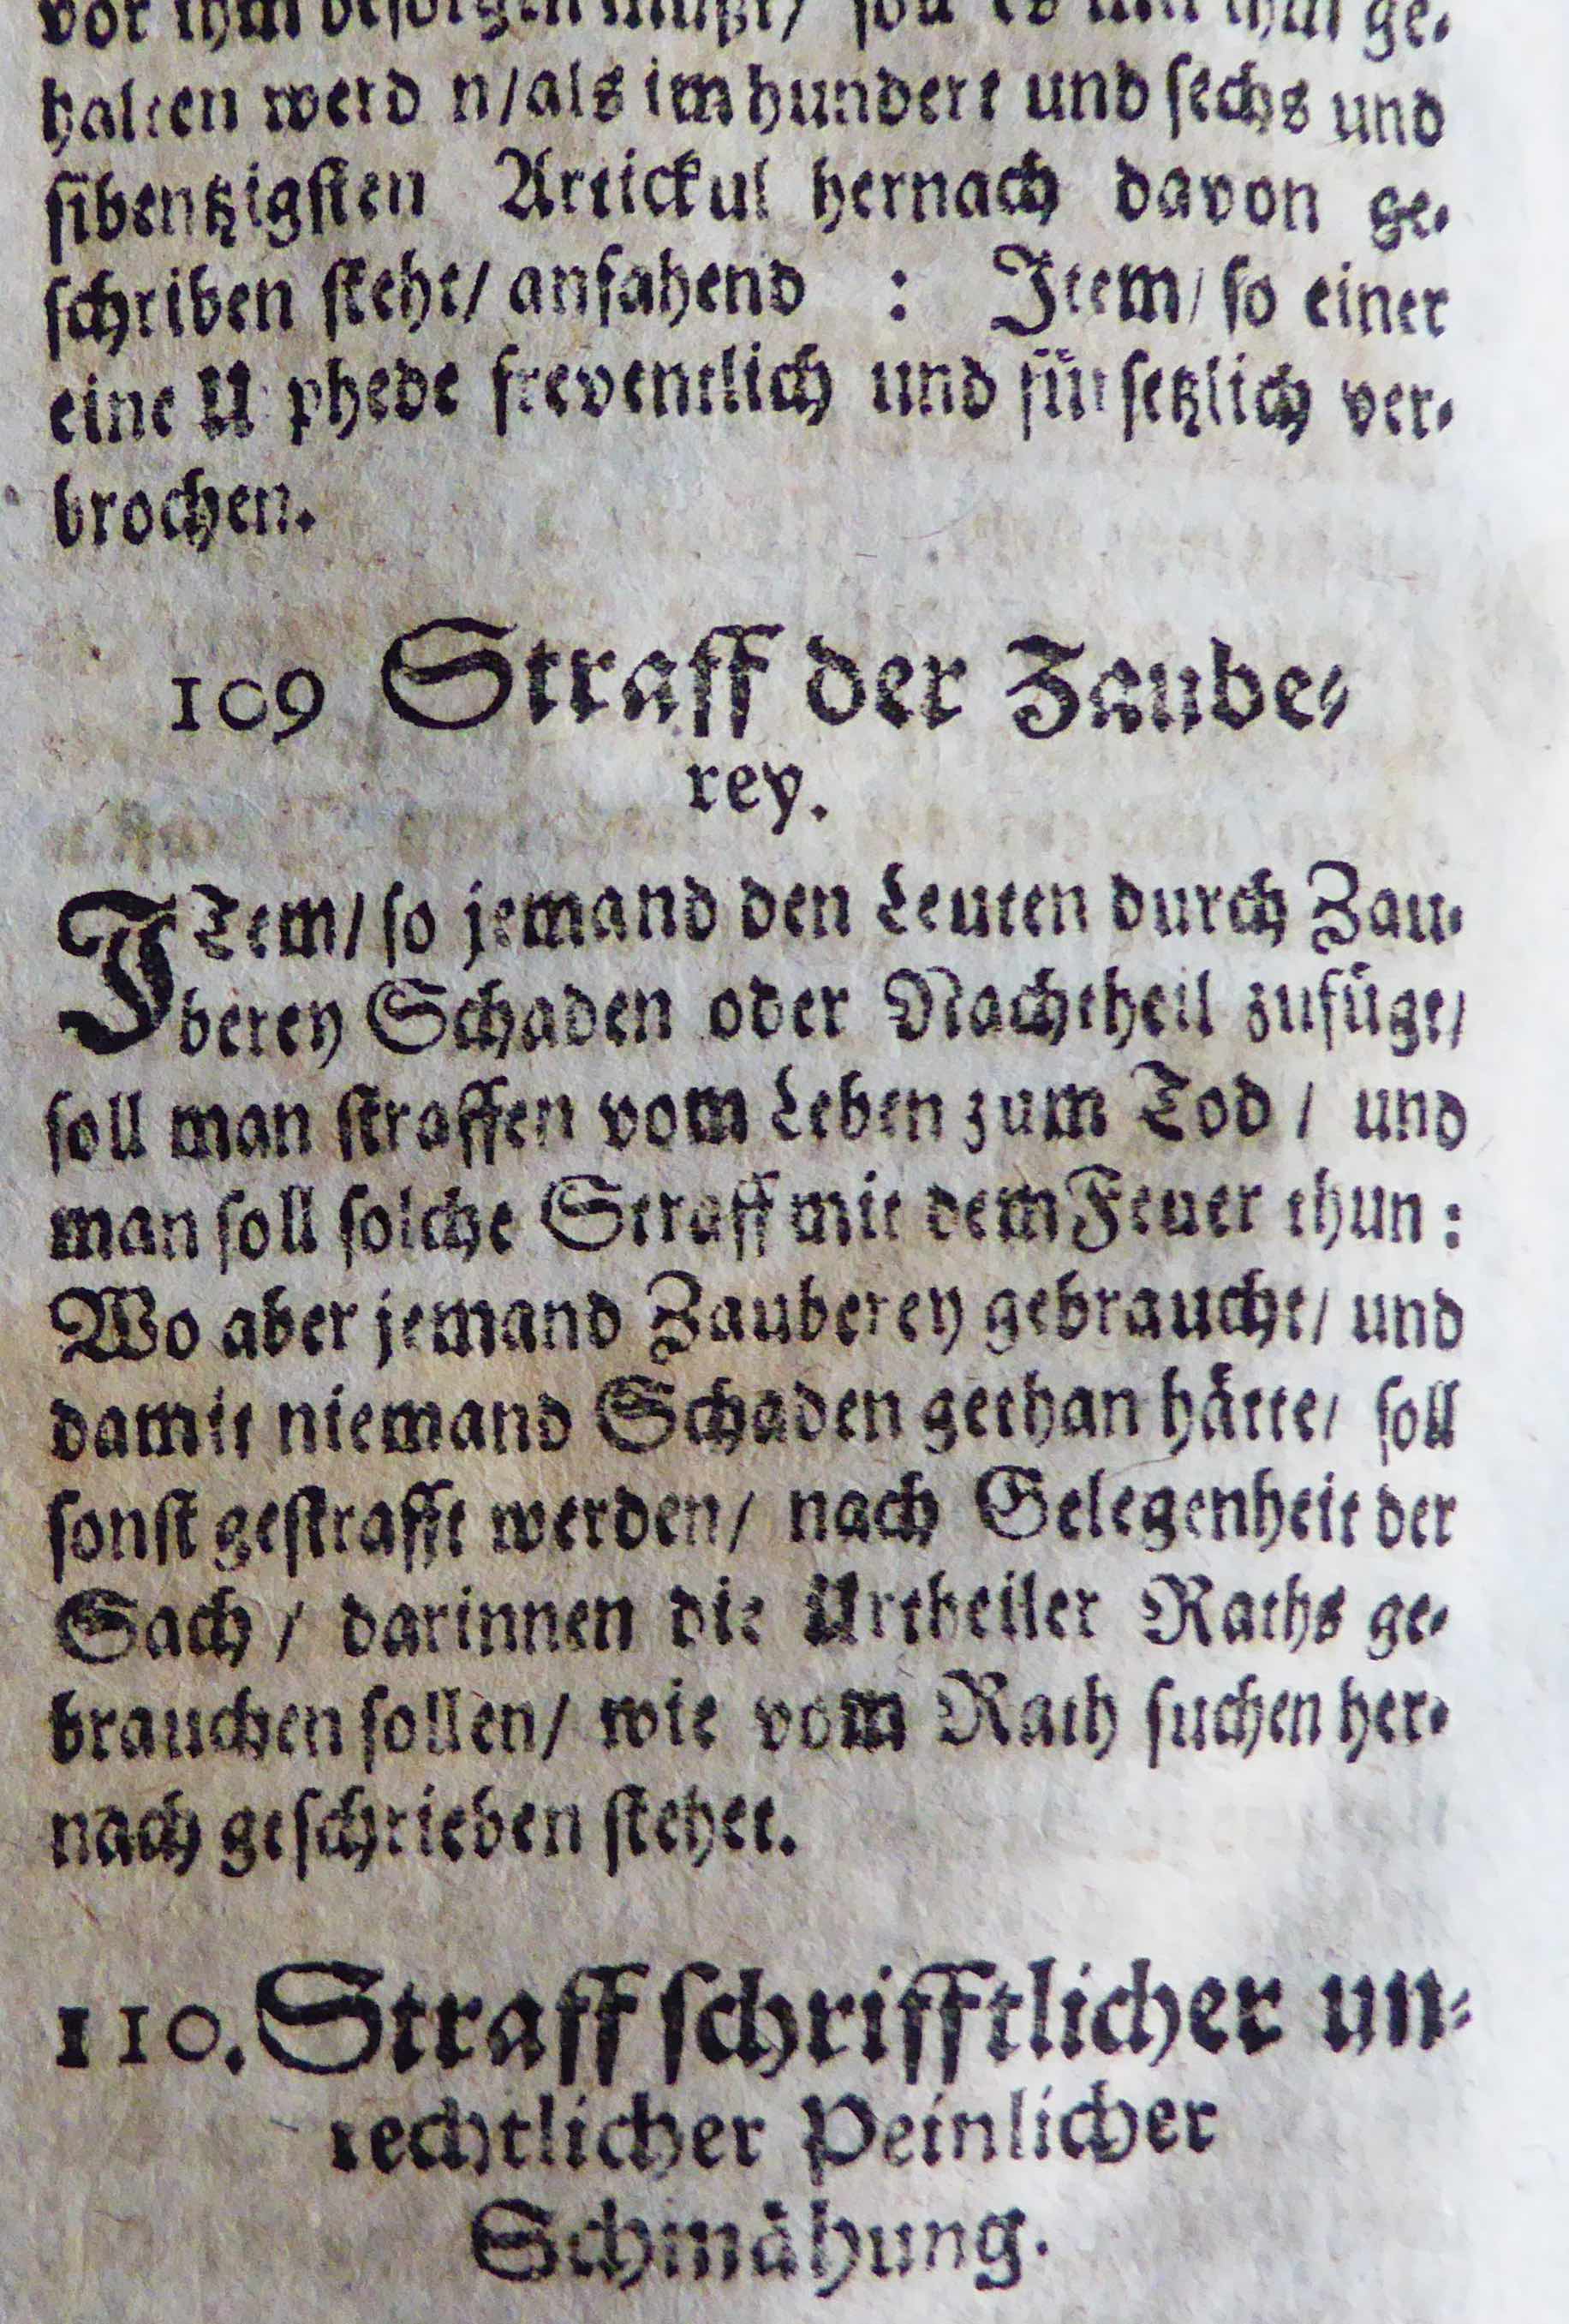 vor ihm besorgen müßt/ soll es mit ihm ge-
halten werd n/als im hundert und sechs und
sibentzigsten Artickul hernach davon ge-
schriben steht/ anfahend : Item/ so einer
eine U phede freventlich und fürsetzlich ver-
brochen.
109 Straff der Zaube-
rey.
ITem/ so jemand den Leuten durch Zau-
berey Schaden oder Nachtheil zufügt/
soll man straffen vom Leben zum Tod / und
man soll solche Straff mit dem Feuer thun :
Wo aber jemand Zauberey gebraucht/ und
damit niemand Schaden gethan hätte/ soll
sonst gestrafft werden/ nach Gelegenheit der
Sach / darinnen die Urtheiler Raths ge-
brauchen sollen/ wie vom Rath suchen her-
nach geschrieben stehet.
110. Straff schrifftlicher un-
rechtlicher Peinlicher
Schmähung.